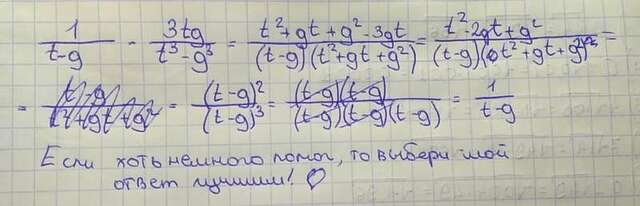 1/(t-g) - 3tg/(t³-g³) = (t²+gt+g²-3gt)/((t-g)(t²+gt+g²)) = (t²-2gt+g²)/((t-g)(t²+gt+g²)) =
= (t-g)²/(t-g)³ = (t-g)(t-g)/((t-g)(t-g)(t-g)) = 1/(t-g)
Если хоть немного помог, то выбери мой
ответ лучшим! ♡